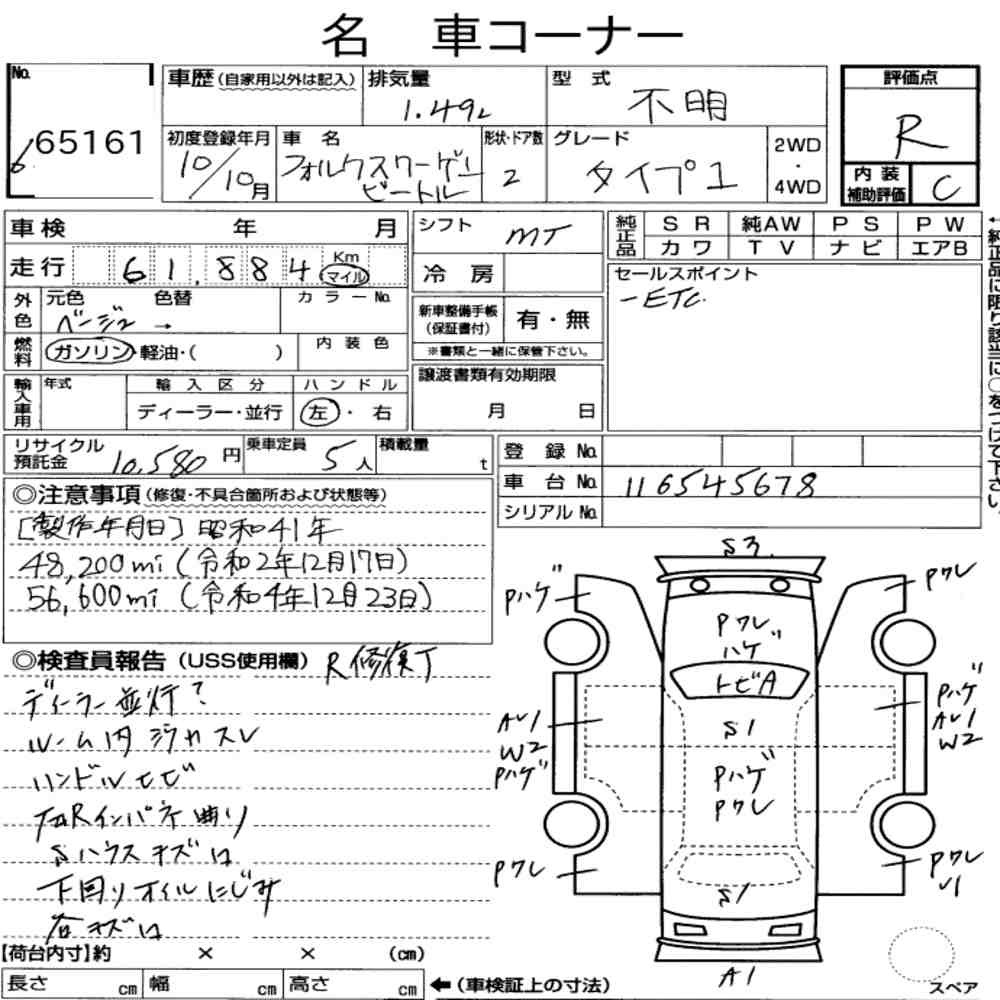 名 車コーナー
No.
65161
車歴(自家用以外は記入)
排気量
1.49L
型 式
不明
評価点
R
初度登録年月
10/10月
車 名
フォルクスワーゲン
ビートル
形状・ドア数
2
グレード
タイプ1
2WD
・
4WD
内装
補助評価
C
車検 年 月
シフト
MT
純正品
SR 純AW PS PW
カワ TV ナビ エアB
走行 61,884
Km
マイル
冷 房
セールスポイント
-ETC.
外色
元色 色替
ベージュ →
カラーNo.
新車整備手帳
(保証書付)
有・無
※書類と一緒に保管下さい。
燃料
ガソリン・軽油・( )
内 装 色
輸入車用
年式
輸 入 区 分
ディーラー・並行
ハ ン ド ル
左・右
譲渡書類有効期限
月 日
リサイクル
預託金
10,580 円
乗車定員
5人
積載量
t
登 録 No.
車 台 No.
116545678
シリアル No.
←純正品に限り該当に○をつけて下さい。
◎注意事項(修復・不具合箇所および状態等)
[製作年月日] 昭和41年
48,200mi (令和2年12月17日)
56,600mi (令和4年12月23日)
◎検査員報告(USS使用欄) R修復丁
ディーラー並行?
ルーム内 ジカ スレ
ハンドルヒビ
Rインパネ曲り
Sハウスキズ
下回りオイルにじみ
キズ
S3
Pハゲ
Pワレ
Pワレ
ハゲ
トビA
S1
Pハゲ
Pワレ
AU1
W2
Pハゲ
Pハゲ
AU1
W2
Pワレ
S1
Pワレ
U1
A1
【荷台内寸】約 × × (cm)
長さ cm 幅 cm 高さ cm ←(車検証上の寸法)
スペア